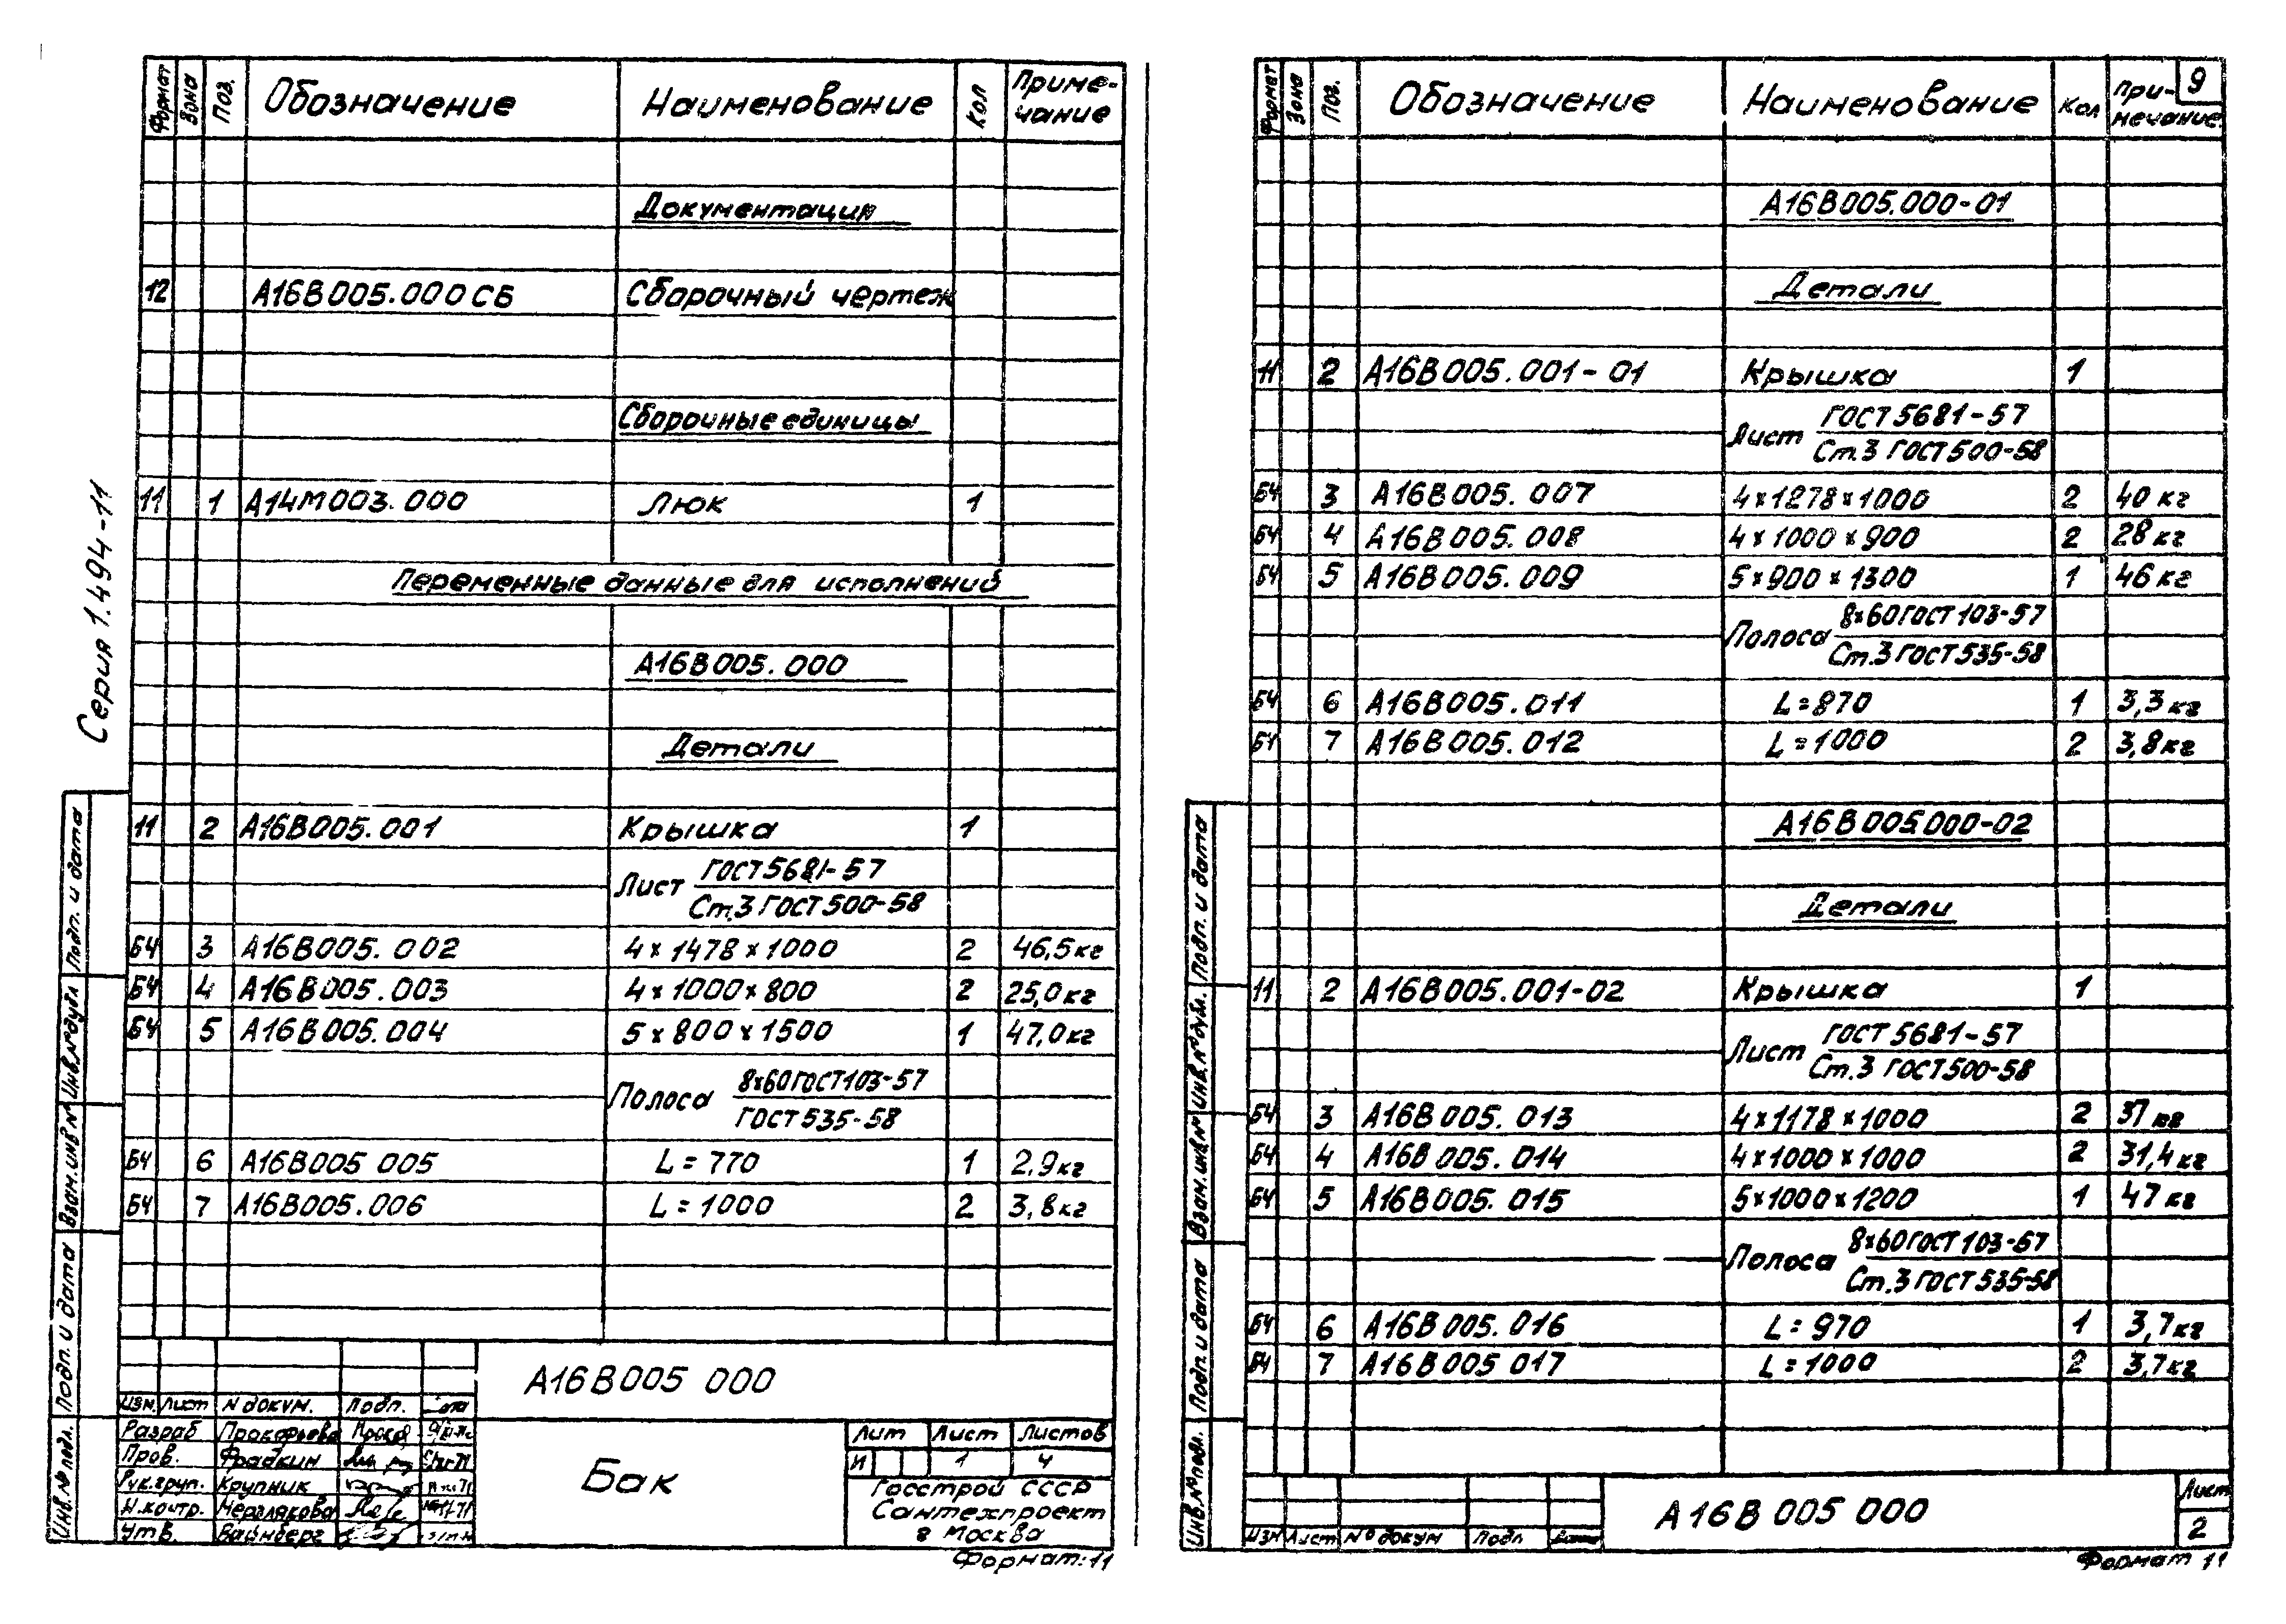 Формат Зона Поз. Обозначение Наименование Кол Приме-
чание
Документация
12 А16В005.000СБ Сборочный чертеж
Сборочные единицы
11 1 А14М003.000 Люк 1
Переменные данные для исполнений
А16В005.000
Детали
11 2 А16В005.001 Крышка 1
Лист ГОСТ5681-57
Ст.3 ГОСТ500-58
БЧ 3 А16В005.002 4×1478×1000 2 46,5кг
БЧ 4 А16В005.003 4×1000×800 2 25,0кг
БЧ 5 А16В005.004 5×800×1500 1 47,0кг
Полоса 8×60ГОСТ103-57
ГОСТ535-58
БЧ 6 А16В005 005 L=770 1 2,9кг
БЧ 7 А16В005.006 L=1000 2 3,8кг
Серия 1.494-11
Подп. и дата
Инв.№дубл
Взам.инв№
Подп. и дата
Инв.№подл.
А16В005 000
Изм. Лист N докум. Подп.
Разраб Прокофьева
Пров. Фрадкин
Рук.груп. Крупник
Н.контр. Мерзлякова
Утв. Вайнберг
Бак
Лит Лист Листов
И 1 4
Госстрой СССР
Сантехпроект
г Москва
Формат:11
9
Формат Зона Поз. Обозначение Наименование Кол При-
мечание.
А16В005.000-01
Детали
11 2 А16В005.001-01 Крышка 1
Лист ГОСТ5681-57
Ст.3 ГОСТ500-58
БЧ 3 А16В005.007 4×1278×1000 2 40кг
БЧ 4 А16В005.008 4×1000×900 2 28кг
БЧ 5 А16В005.009 5×900×1300 1 46кг
Полоса 8×60ГОСТ103-57
Ст.3ГОСТ535-58
БЧ 6 А16В005.011 L=870 1 3,3кг
БЧ 7 А16В005.012 L=1000 2 3,8кг
А16В005.000-02
Детали
11 2 А16В005.001-02 Крышка 1
Лист ГОСТ5681-57
Ст.3 ГОСТ500-58
БЧ 3 А16В005.013 4×1178×1000 2 37кг
БЧ 4 А16В005.014 4×1000×1000 2 31,4кг
БЧ 5 А16В005.015 5×1000×1200 1 47кг
Полоса 8×60ГОСТ103-57
Ст.3ГОСТ535-58
БЧ 6 А16В005.016 L=970 1 3,7кг
БЧ 7 А16В005 017 L=1000 2 3,7кг
Подп. и дата
Инв.№дубл.
Взам.инв№
Подп. и дата
Инв.№подл.
Изм Лист №докум Подп Дата
А16В005 000
Лист
2
Формат 11